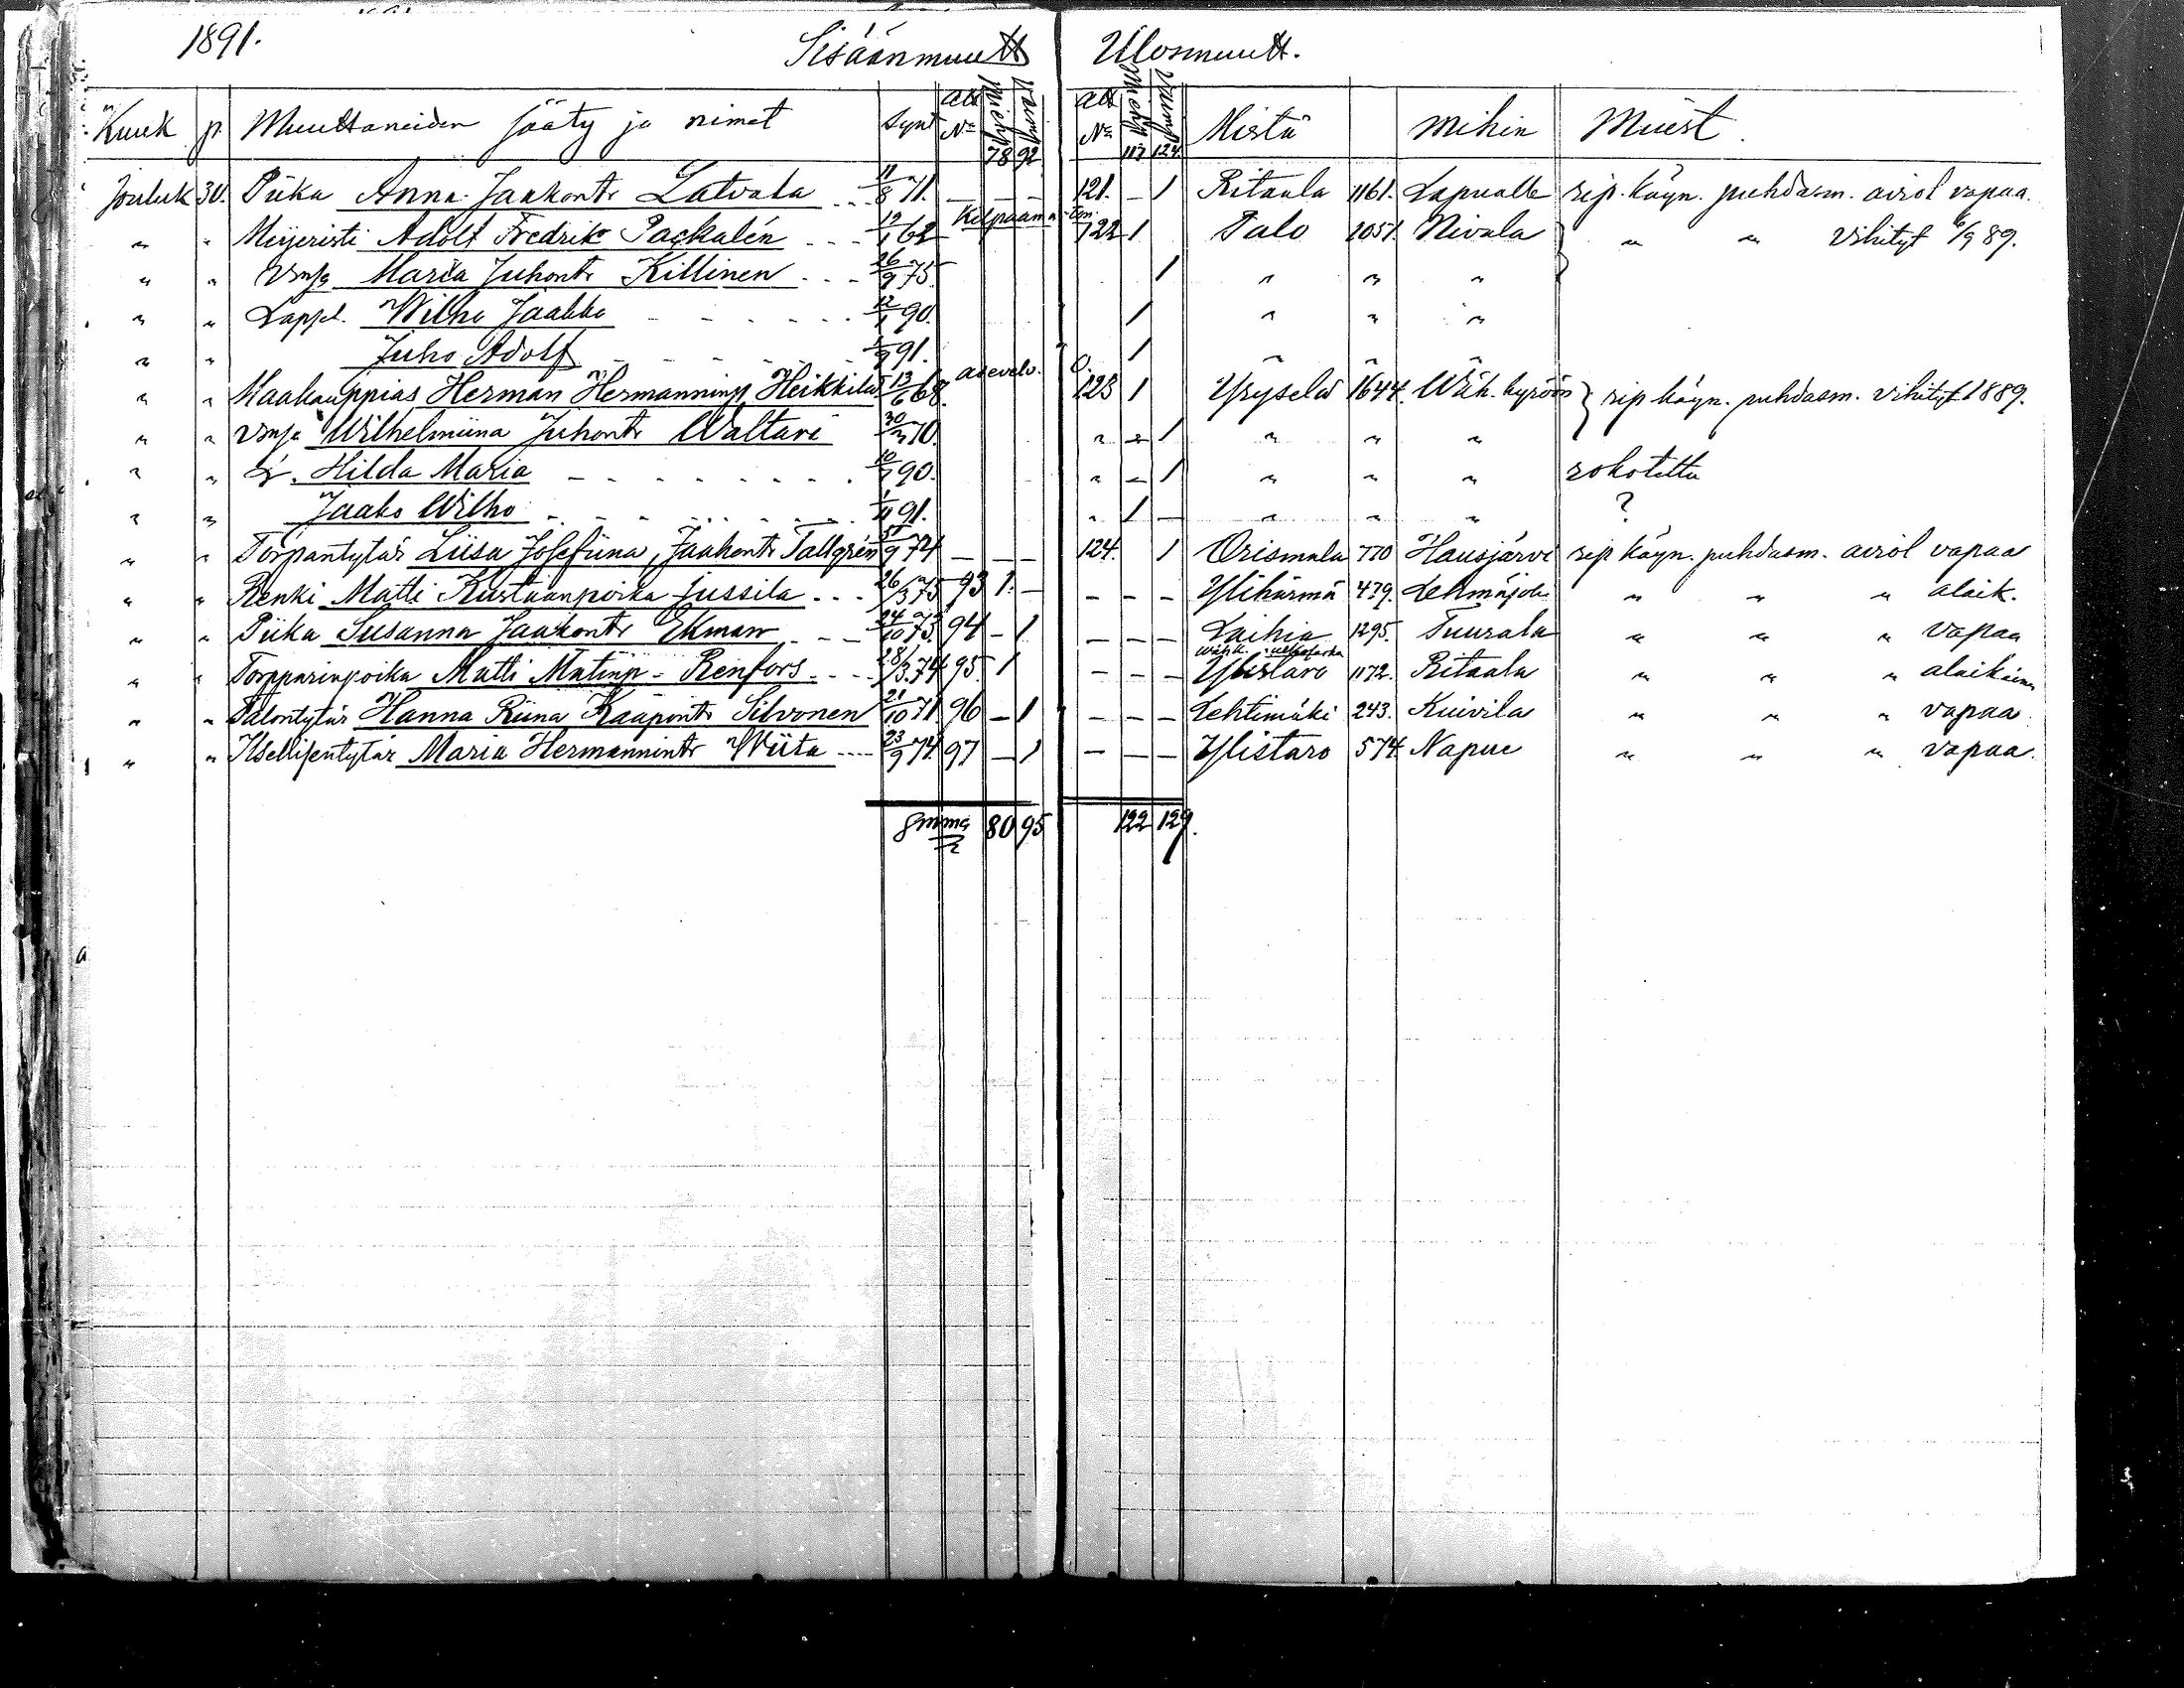 1891. Sisäänmuutt Ulosmuutt.
Kuuk p. Muuttaneiden sääty ja nimet Synt att No Miehp Vaimp att No Miehp Vaimp Mistä mihin Muist.
78 92 117 124
Jouluk 30. Piika Anna Jaakontr Latvala 11/8 71. — — — 121. — 1 Ritaala 1161. Lapualle rip. käyn. puhdasm. aviol vapaa.
" " Meijeristi Adolf Fredrik Packalén 19/1 62 Kelpaama-ton. 122 1 Palo 2051. Nivala " " Vihityt 6/9 89.
" " Vmsa Maria Juhontr Killinen 26/9 75. 1 " " "
" " Lapset. Wilho Jaakko 12/1 90. 1 " " "
" " Juho Adolf 1/9 91. 1 " " "
" " Maakauppias Herman Hermanninp Heikkilä 13/6 68. asevelv. O. 123 1 Yryselä 1644. Wäh. kyröön rip käyn. puhdasm. vihityt 1889.
" " Vmsa Wilhelmiina Juhontr Waltari 30/3 70. " " 1 " " "
" " L. Hilda Maria 10/7 90. " — 1 " " " rokotettu
" " Jaako Wilho 1/11 91. " 1 — " " " ?
" " Torpantytär Liisa Josefiina, Jaakontr Tallgrén 5/9 74 — — — 124. 1 Orismala 770 Hausjärvi rip käyn. puhdasm. aviol vapaa
" " Renki Matti Kustaanpoika Jussila 26/3 75 93 1. — — — — Ylihärmä 479. Lehmäjoki " " " alaik.
" " Piika Susanna Jaakontr Ekman 24/10 73. 94 — 1 — — — Laihia 1295. Tuurala " " " vapaa
" " Torpparinpoika Matti Matinp - Renfors 28/3 74 95. 1 — — — Ylistaro 1172. Ritaala " " " alaikäinen
" " Talontytär Hanna Riina Kaapontr Silvonen 21/10 71 96 — 1 — — — Lehtimäki 243. Kuivila " " " vapaa
" " Itsellisentytär Maria Hermannintr Wiita 23/9 74. 97 — 1 — — — Ylistaro 574. Napue " " " vapaa.
Smma 80 95 122 129.